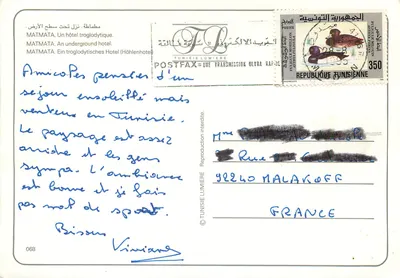 مطماطة. نزل تحت سطح الأرض
MATMATA. Un hôtel troglodytique.
MATMATA. An underground hotel.
MATMATA. Ein troglodytisches Hotel (Höhlenhotel)
البريد الإلكتروني
POSTFAX
TUNISIE LUMIERE
الجمهورية التونسية
350
REPUBLIQUE TUNISIENNE
Amicales pensées d'un
séjour ensoleillé mais
venteux en Tunisie.
Le paysage est assez
aride et les gens
sympa. L'ambiance
est bonne et je fais
pas mal de sport.
Bisous
Viviane
© TUNISIE LUMIERE
Reproduction interdite
Mme
Rue
92240 MALAKOFF
FRANCE
068